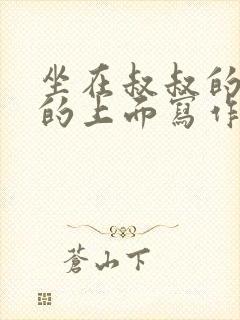 坐在叔叔的
的上而寫作
蒼山下